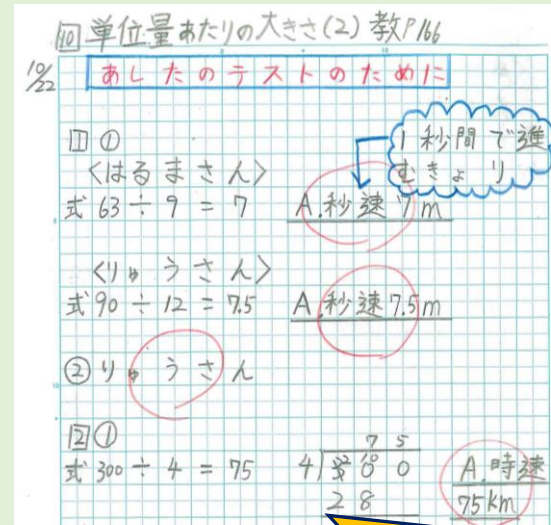 ⑩ 単位量あたりの大きさ(2) 教P166
10/22 あしたのテストのために
1 ①
1秒間で進
むきょり
〈はるまさん〉
式 63÷9=7 A.秒速7m
〈りゅうさん〉
式 90÷12=7.5 A.秒速7.5m
② りゅうさん
2 ①
75
式 300÷4=75 4)300 A.時速
28 75km